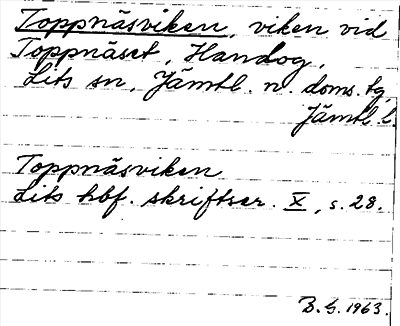 Toppnäsviken, viken vid
Toppnäset, Handog,
Lits sn, Jämtl. n. doms. tg,
Jämtl. l.
Toppnäsviken
Lits hbf. skriftser. X, s. 28.
B. G. 1963.